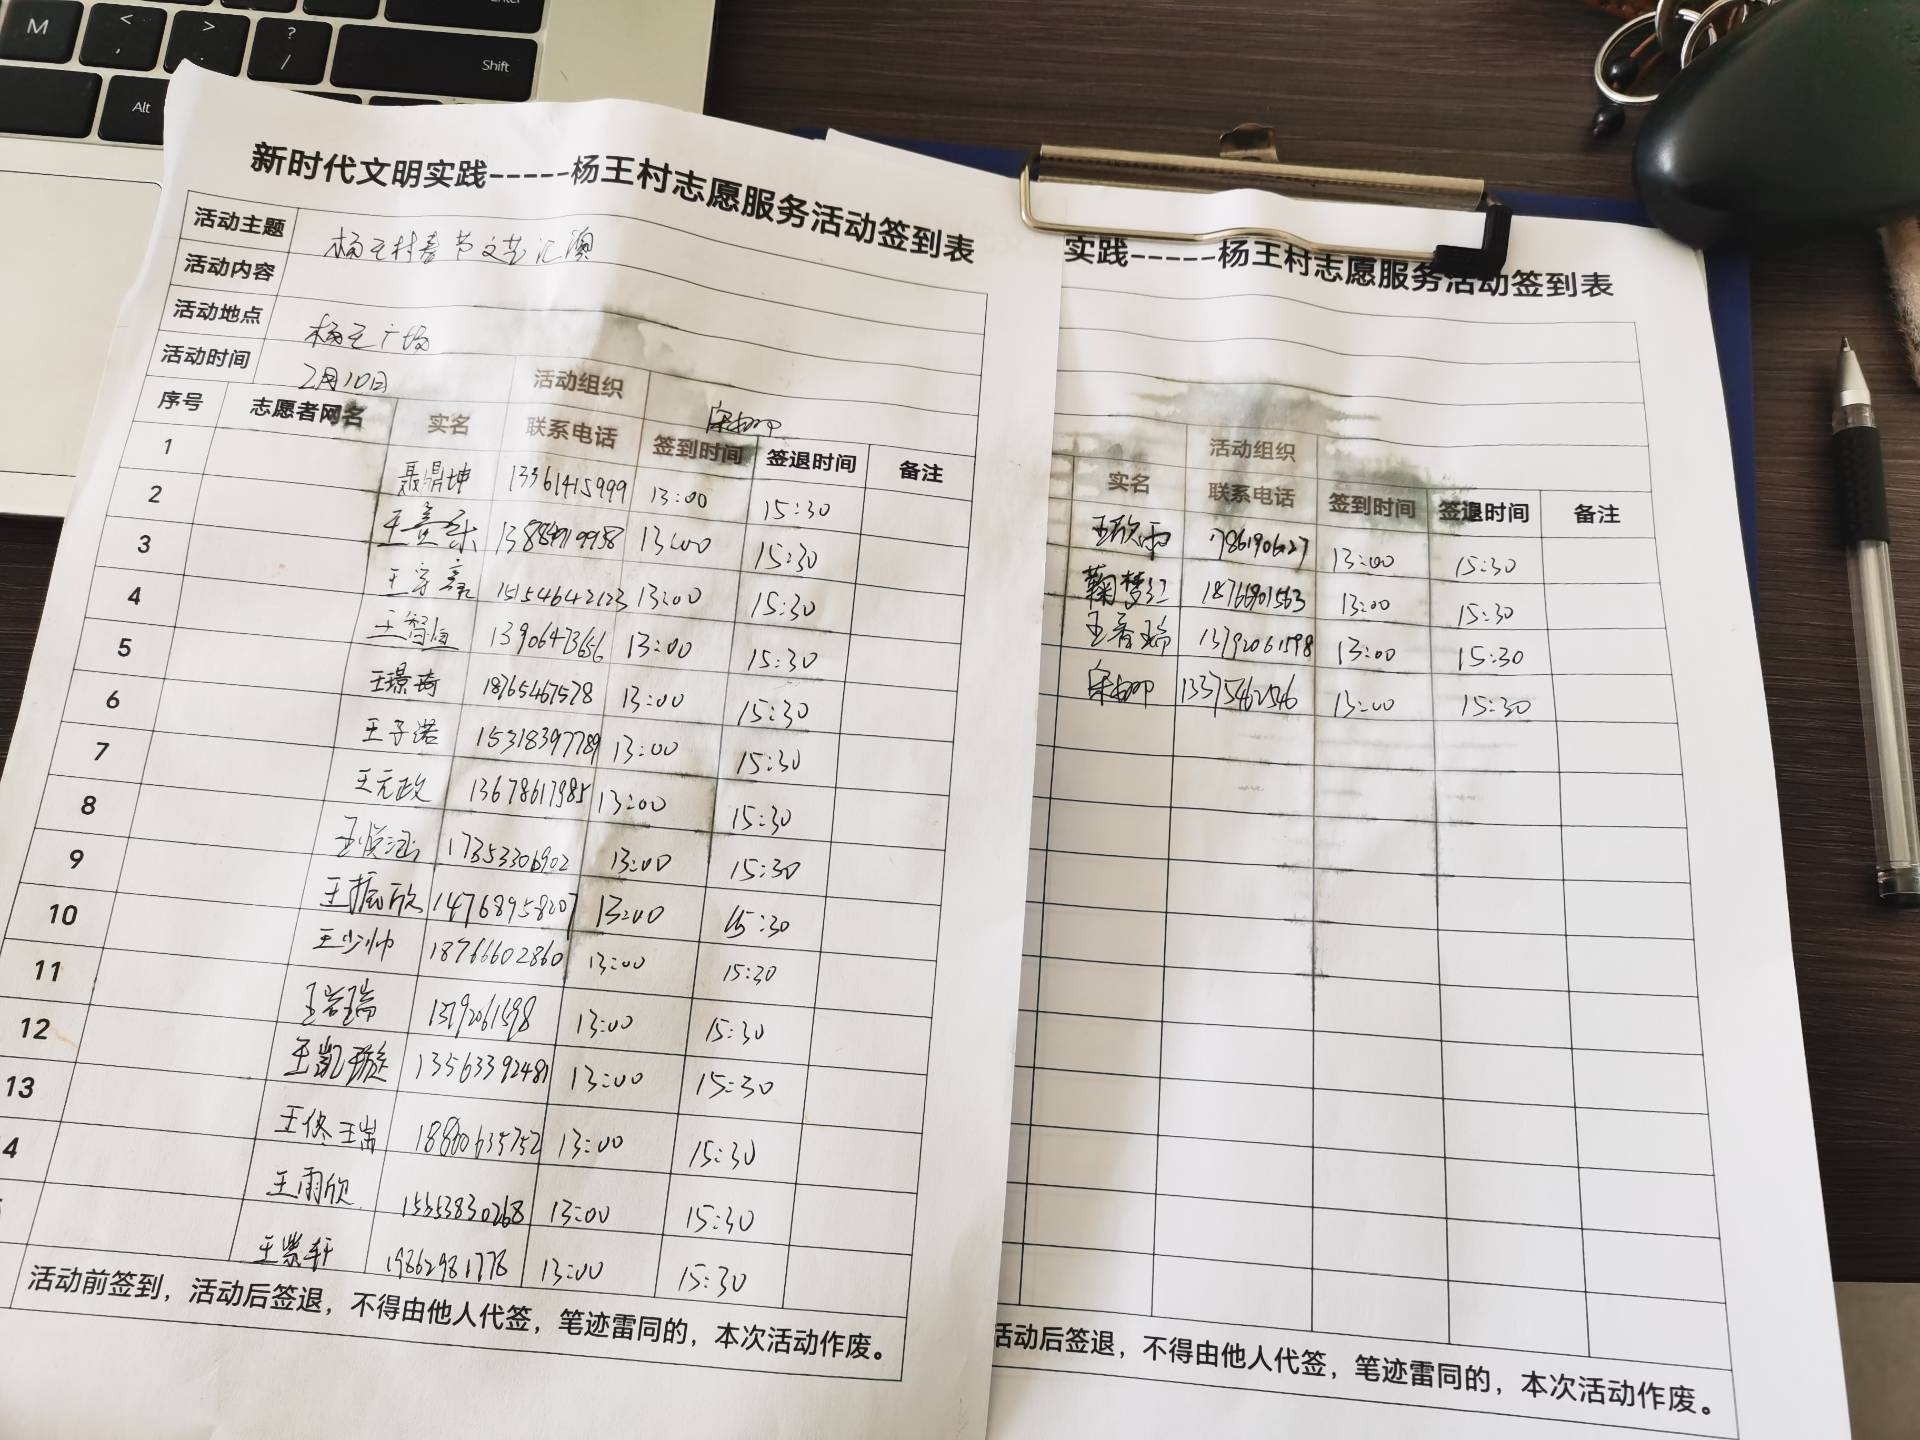 M
<
,
>
.
?
/
Enter
Shift
Alt
新时代文明实践-----杨王村志愿服务活动签到表
活动主题 杨王村春节文艺汇演
活动内容
活动地点 杨王广场
活动时间 2月10日 活动组织
序号 志愿者网名 实名 联系电话 签到时间 签退时间 备注
1 聂鼎坤 13361415999 13:00 15:30
2 13:00 15:30
3 15154642123 13:00 15:30
4 王智恒 13:00 15:30
5 王璟琦 18765467578 13:00 15:30
6 王子诺 15318397789 13:00 15:30
7 王元政 13678617985 13:00 15:30
8 王悦涵 17353306902 13:00 15:30
9 王振欣 14768958207 13:00 15:30
10 王少帅 18766602860 13:00 15:30
11 13:00 15:30
12 王凯璇 13563392481 13:00 15:30
13 18860635752 13:00 15:30
4 王雨欣 15553830268 13:00 15:30
王紫轩 19862981778 13:00 15:30
活动前签到，活动后签退，不得由他人代签，笔迹雷同的，本次活动作废。
实践-----杨王村志愿服务活动签到表
活动组织
实名 联系电话 签到时间 签退时间 备注
王欣雨 13:00 15:30
鞠梦红 18766901563 13:00 15:30
13792061598 13:00 15:30
13375462546 13:00 15:30
活动后签退，不得由他人代签，笔迹雷同的，本次活动作废。